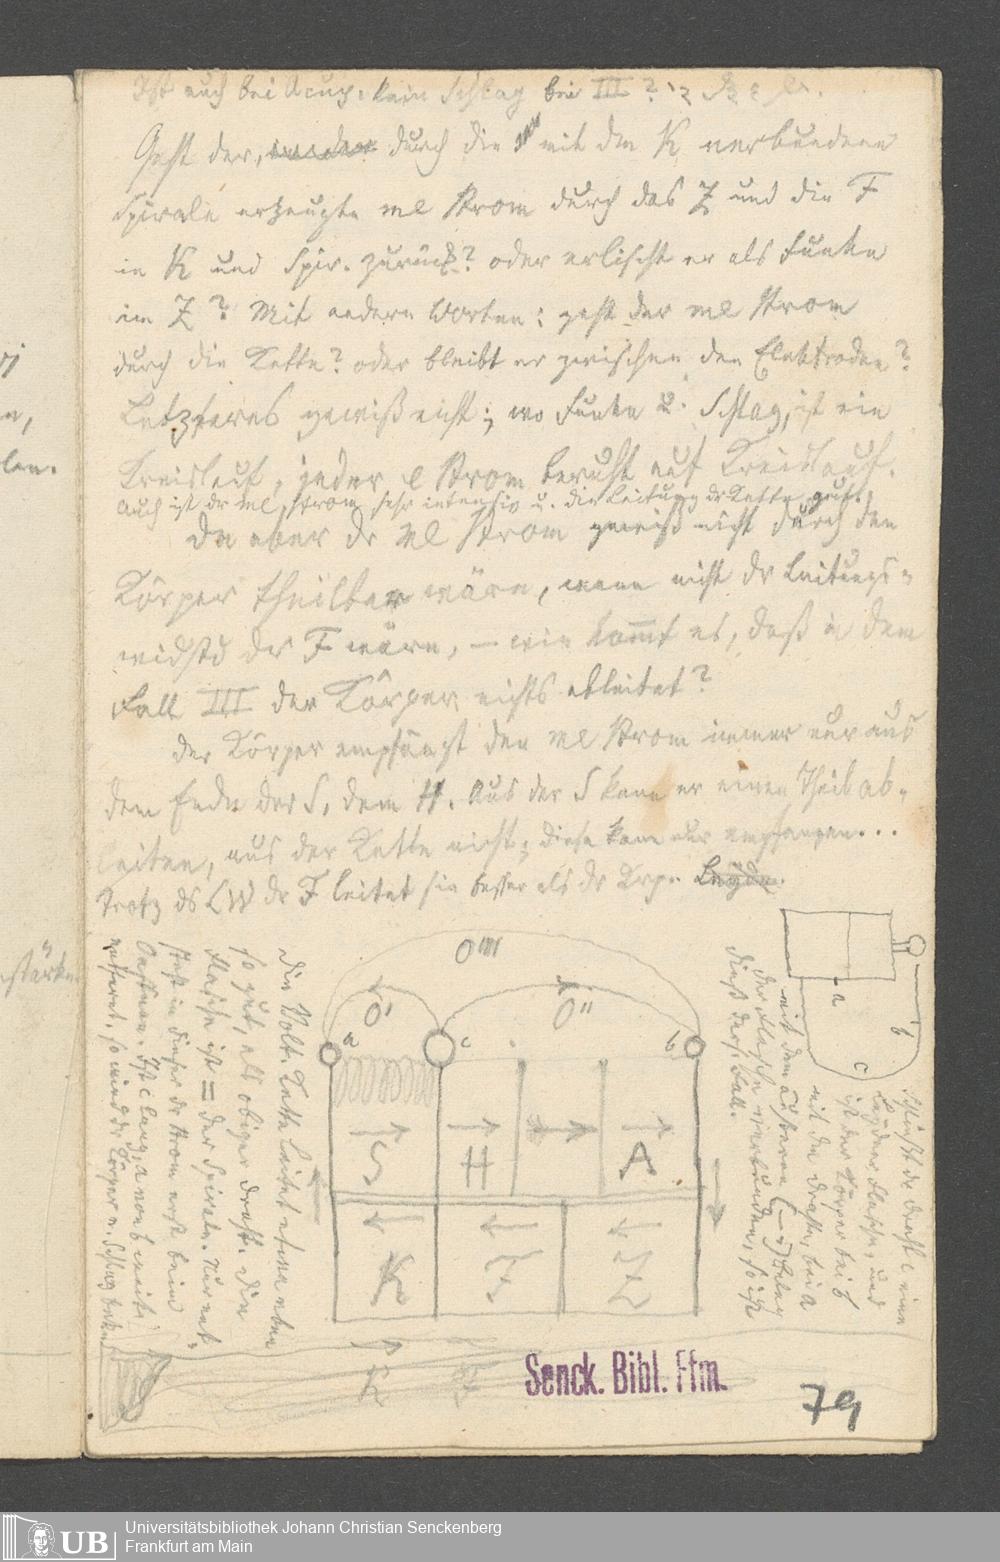 Ist auch bei Acup. kein Schlag bei III?
Geht der, durch die mit den K verbundene
Spirale erzeugte ml Strom durch das Z und die F
in K und Spir. zurück? oder erlischt er als Funke
im Z? Mit andern Worten: geht der ml Strom
durch die Kette? oder bleibt er zwischen den Elektroden?
Letzteres gewiß nicht; wo Funke u. Schlag, ist ein
Kreislauf, jeder e Strom beruht auf Kreislauf.
Auch ist dr ml Strom sehr intensiv u. die Leitung dr Kette gut.
Da aber dr ml Strom gewiß nicht durch den
Körper theilbar wäre, wenn nicht dr Leitungs-
widstd der F wäre, — wie kommt es, daß in dem
Fall III der Körper nichts ableitet?
Der Körper empfängt den ml Strom immer nur aus
dem Ende der S, dem H. Aus der S kann er einen Theil ab-
leiten, aus der Kette nicht; diese kann nur empfangen...
Trotz ds LW dr F leitet sie besser als dr Krp.
die Volt. Kette leitet etwa eben
so gut, als obiger Draht. Die
Flasche ist = der Spirale. Nur ent-
steht in dieser dr Strom erst beim
Oeffnen. Ist c lang, a von b weit
entfernt, so wird der Körper e. Schlag bekn
O''''
O'
O''
a
c
b
S
H
A
K
F
Z
K
a
b
c
Schließt dr Draht c eine
Leydner Flasche, und
ist der Körper bei b
mit dem Drahte, bei a
mit dem äußeren (–) Beleg
der Flasche verbunden, so ist
dieß ders. Fall.
Senck. Bibl. Ffm.
79
UB
Universitätsbibliothek Johann Christian Senckenberg
Frankfurt am Main